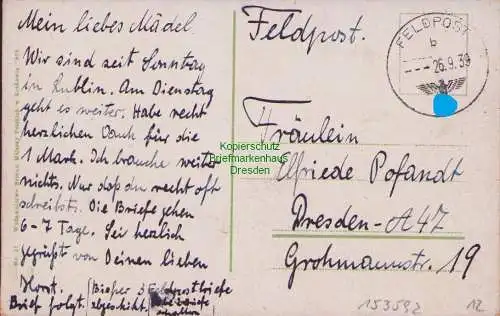 Mein liebes Mädel
Wir sind seit Sonntag
in Lublin. Am Dienstag
geht es weiter. Habe recht
herzlichen Dank für die
1 Mark. Ich brauche weiter
nichts. Nur daß du recht oft
schreibst. Die Briefe gehen
6-7 Tage. Sei herzlich
gegrüßt von Deinen lieben
Horst. (Bisher 3 Feldpostbriefe
Brief folgt. abgeschickt.
Feldpost.
FELDPOST
b
26.9.39
Fräulein
Elfriede Pofandt
Dresden-A47
Grohmannstr. 19
Kopierschutz
Briefmarkenhaus
Dresden
153592 12